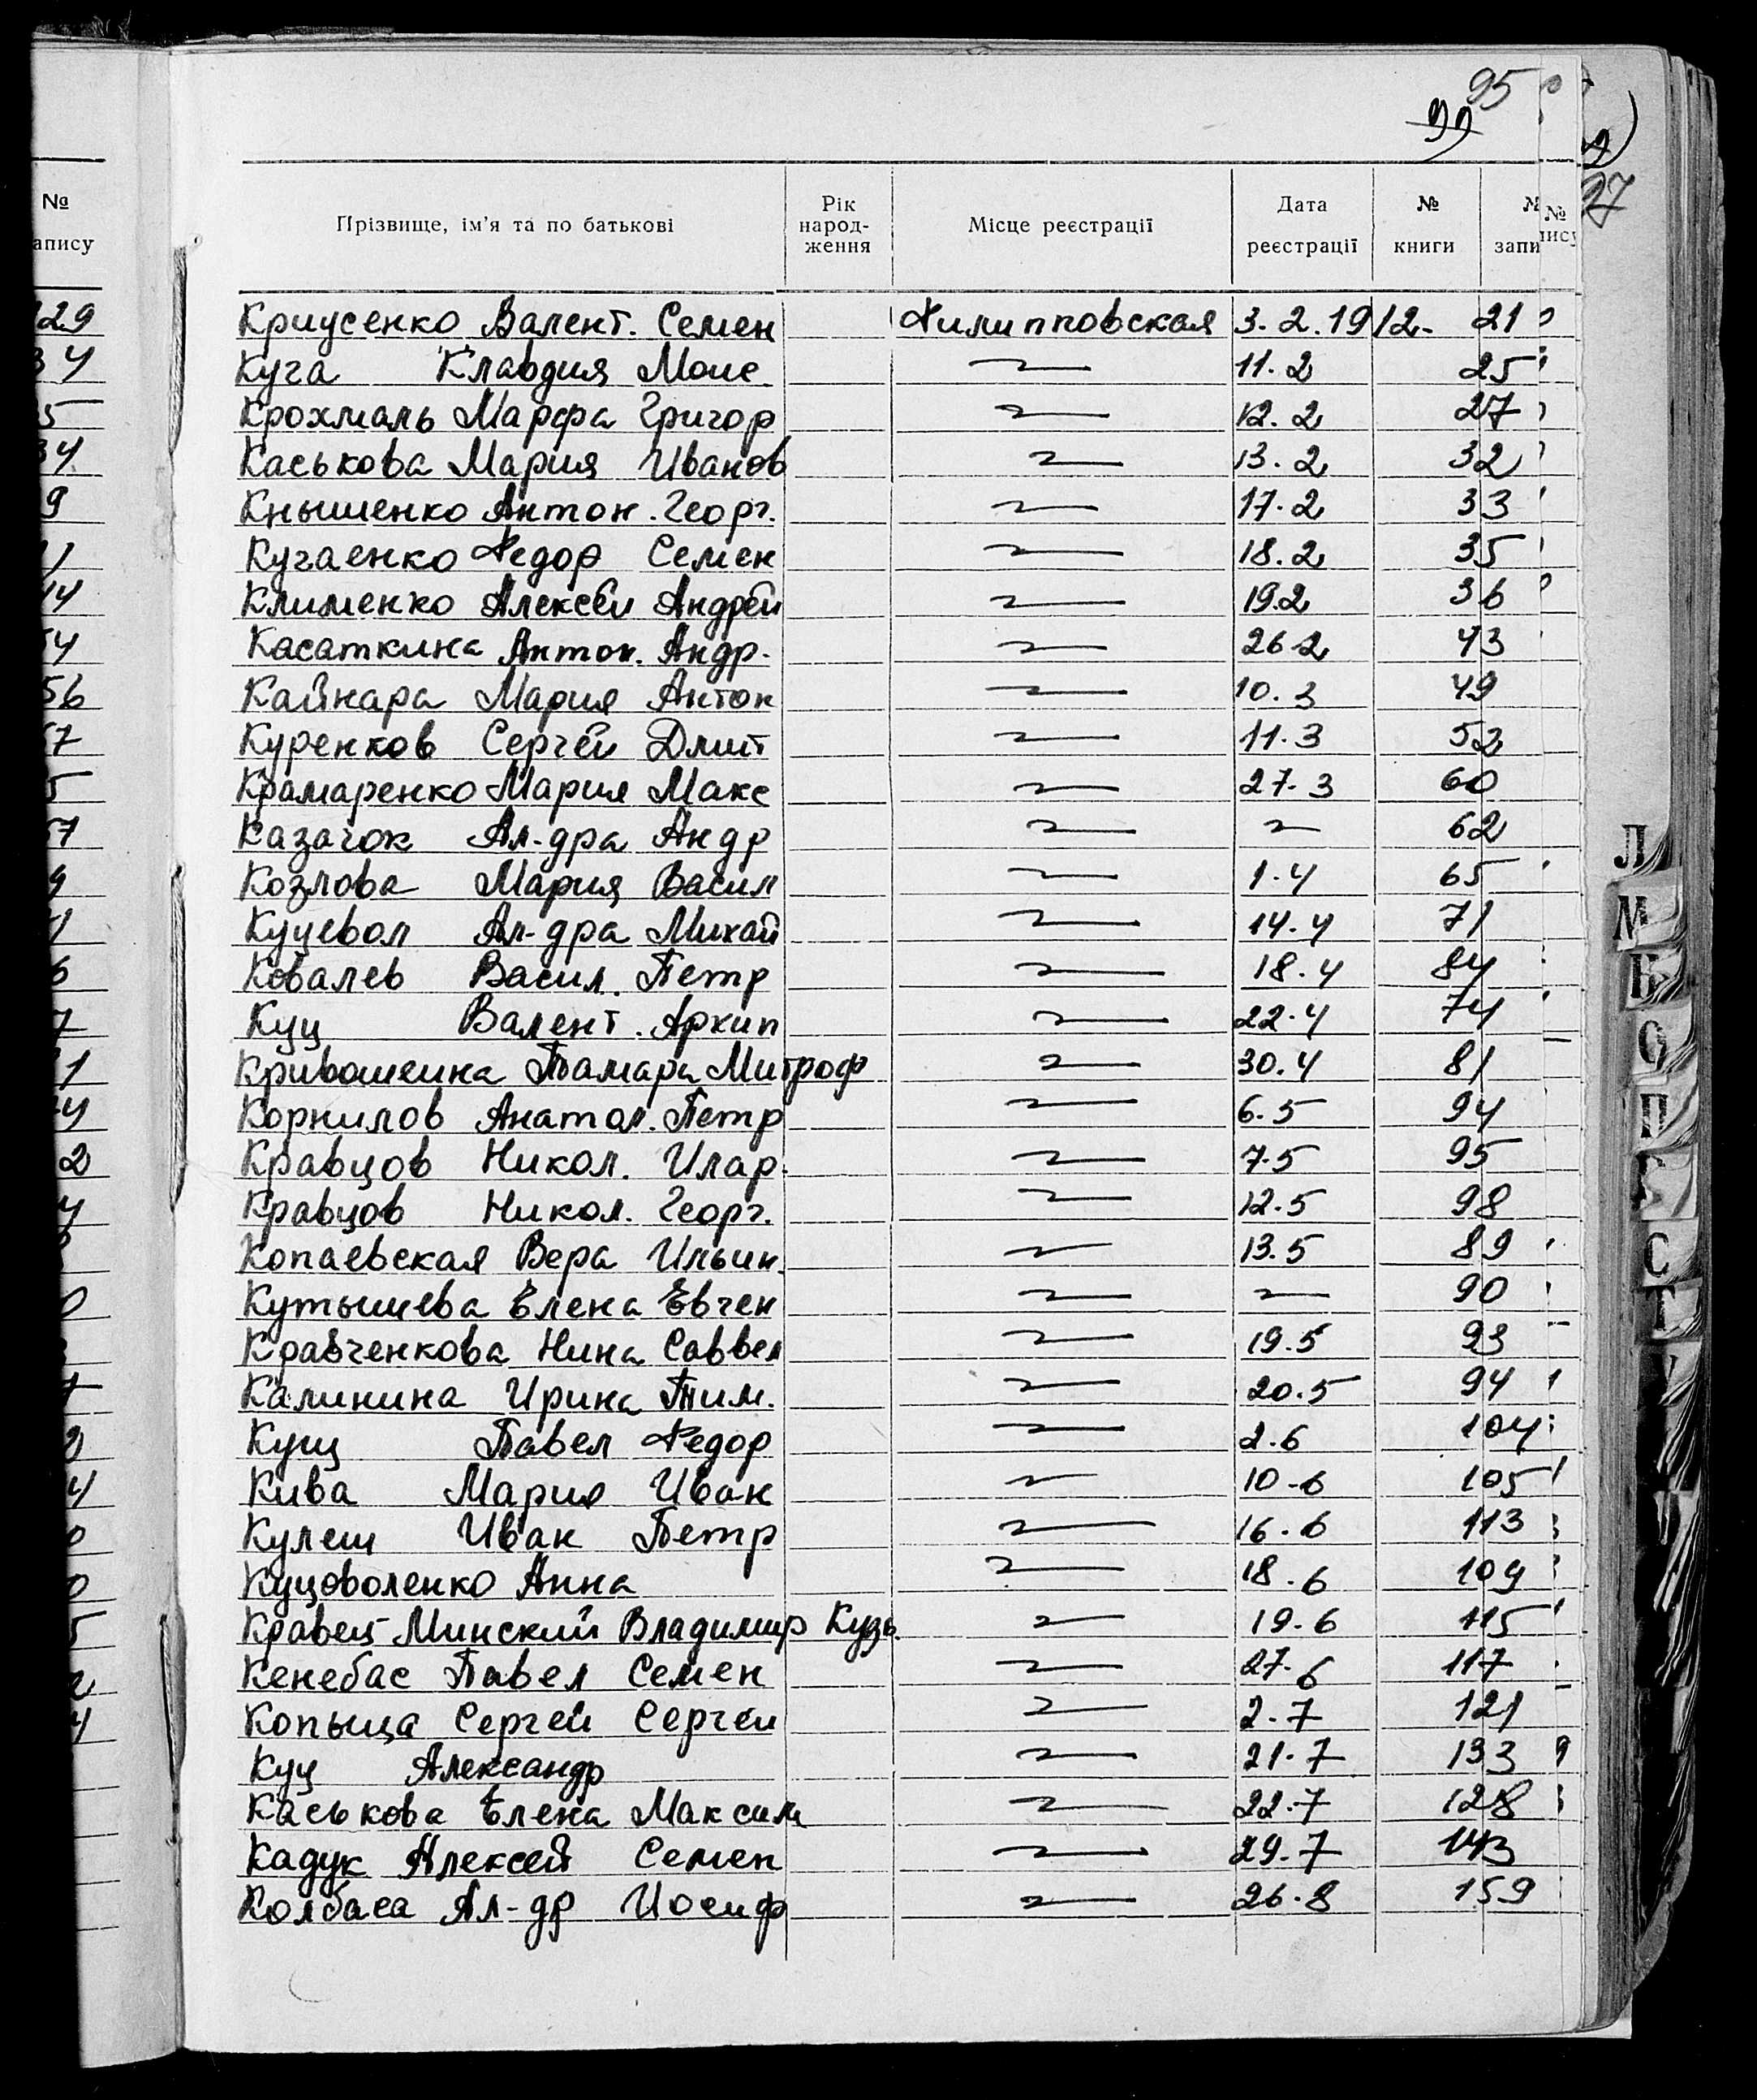 95
99
97
№
апису
Прізвище, ім'я та по батькові
Рік народження
Місце реєстрації
Дата реєстрації
№ книги
№ запи
№
пису
Криусенко Валент. Семен Филипповская 3.2.1912- 21
Куча Клавдия Моис 〃 11.2 25
Крохмаль Марфа Григор 〃 12.2 27
Каськова Мария Иванов 〃 13.2 32
Кнышенко Антон. Георг. 〃 17.2 33
Кучаенко Федор Семен 〃 18.2 35
Клименко Алексей Андрей 〃 19.2 36
Касаткина Антон. Андр. 〃 26.2 43
Кайнара Мария Антон 〃 10.3 49
Куренков Сергей Дмит 〃 11.3 52
Крамаренко Мария Макс 〃 27.3 60
Казачок Ал-дра Андр 〃 〃 62
Козлова Мария Васил 〃 1.4 65
Куцевол Ал-дра Михай 〃 14.4 71
Ковалев Васил. Петр 〃 18.4 84
Куц Валент. Архип 〃 22.4 74
Кривошеина Тамара Митроф 〃 30.4 81
Корнилов Анатол. Петр 〃 6.5 94
Кравцов Никол. Илар. 〃 7.5 95
Кравцов Никол. Георг. 〃 12.5 98
Копаевская Вера Ильин. 〃 13.5 89
Кутышева Елена Евген 〃 〃 90
Кравченкова Нина Саввел 〃 19.5 93
Калинина Ирина Тим. 〃 20.5 94
Кущ Павел Федор 〃 2.6 104
Кива Мария Иван 〃 10.6 105
Кулеш Иван Петр 〃 16.6 113
Куцоволенко Анна 〃 18.6 109
Кравец-Минский Владимир Кузь. 〃 19.6 115
Кенебас Павел Семен 〃 27.6 117
Копыца Сергей Сергей 〃 2.7 121
Куц Александр 〃 21.7 133
Каськова Елена Максим 〃 22.7 128
Кадук Алексей Семен 〃 29.7 143
Колбаса Ал-др Иосиф 〃 26.8 159
Л
М
Н
О
П
С
Т
У